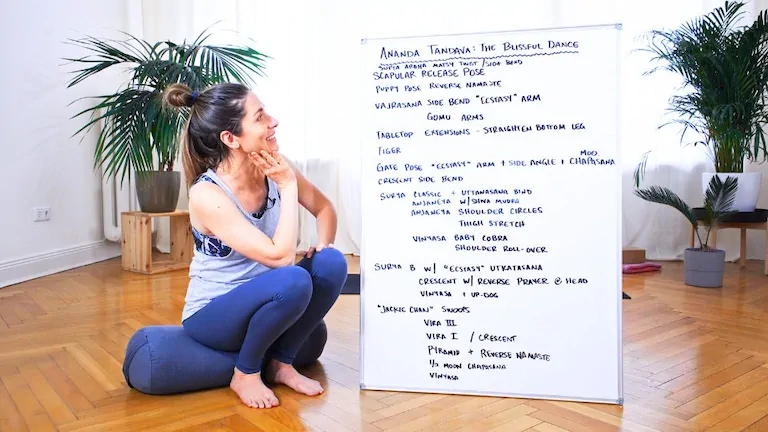 ANANDA TANDAVA: THE BLISSFUL DANCE
SUPTA ARDHA MATSY TWIST / SIDE BEND
SCAPULAR RELEASE POSE
PUPPY POSE REVERSE NAMASTE
VAJRASANA SIDE BEND "ECSTASY" ARM
GOMU ARMS
TABLETOP EXTENSIONS - STRAIGHTEN BOTTOM LEG
TIGER
MOD.
GATE POSE "ECSTASY" ARM + SIDE ANGLE + CHAPASANA
CRESCENT SIDE BEND
SURYA CLASSIC + UTTANASANA BIND
ANJANEYA W/ SHIVA MUDRA
ANJANEYA SHOULDER CIRCLES
THIGH STRETCH
VINYASA BABY COBRA
SHOULDER ROLL-OVER
SURYA B W/ "ECSTASY" UTKATASANA
CRESCENT W/ REVERSE PRAYER @ HEAD
VINYASA + UP-DOG
"JACKIE CHAN" SWOOPS
VIRA III
VIRA I / CRESCENT
PYRAMID + REVERSE NAMASTE
1/2 MOON CHAPASANA
VINYASA